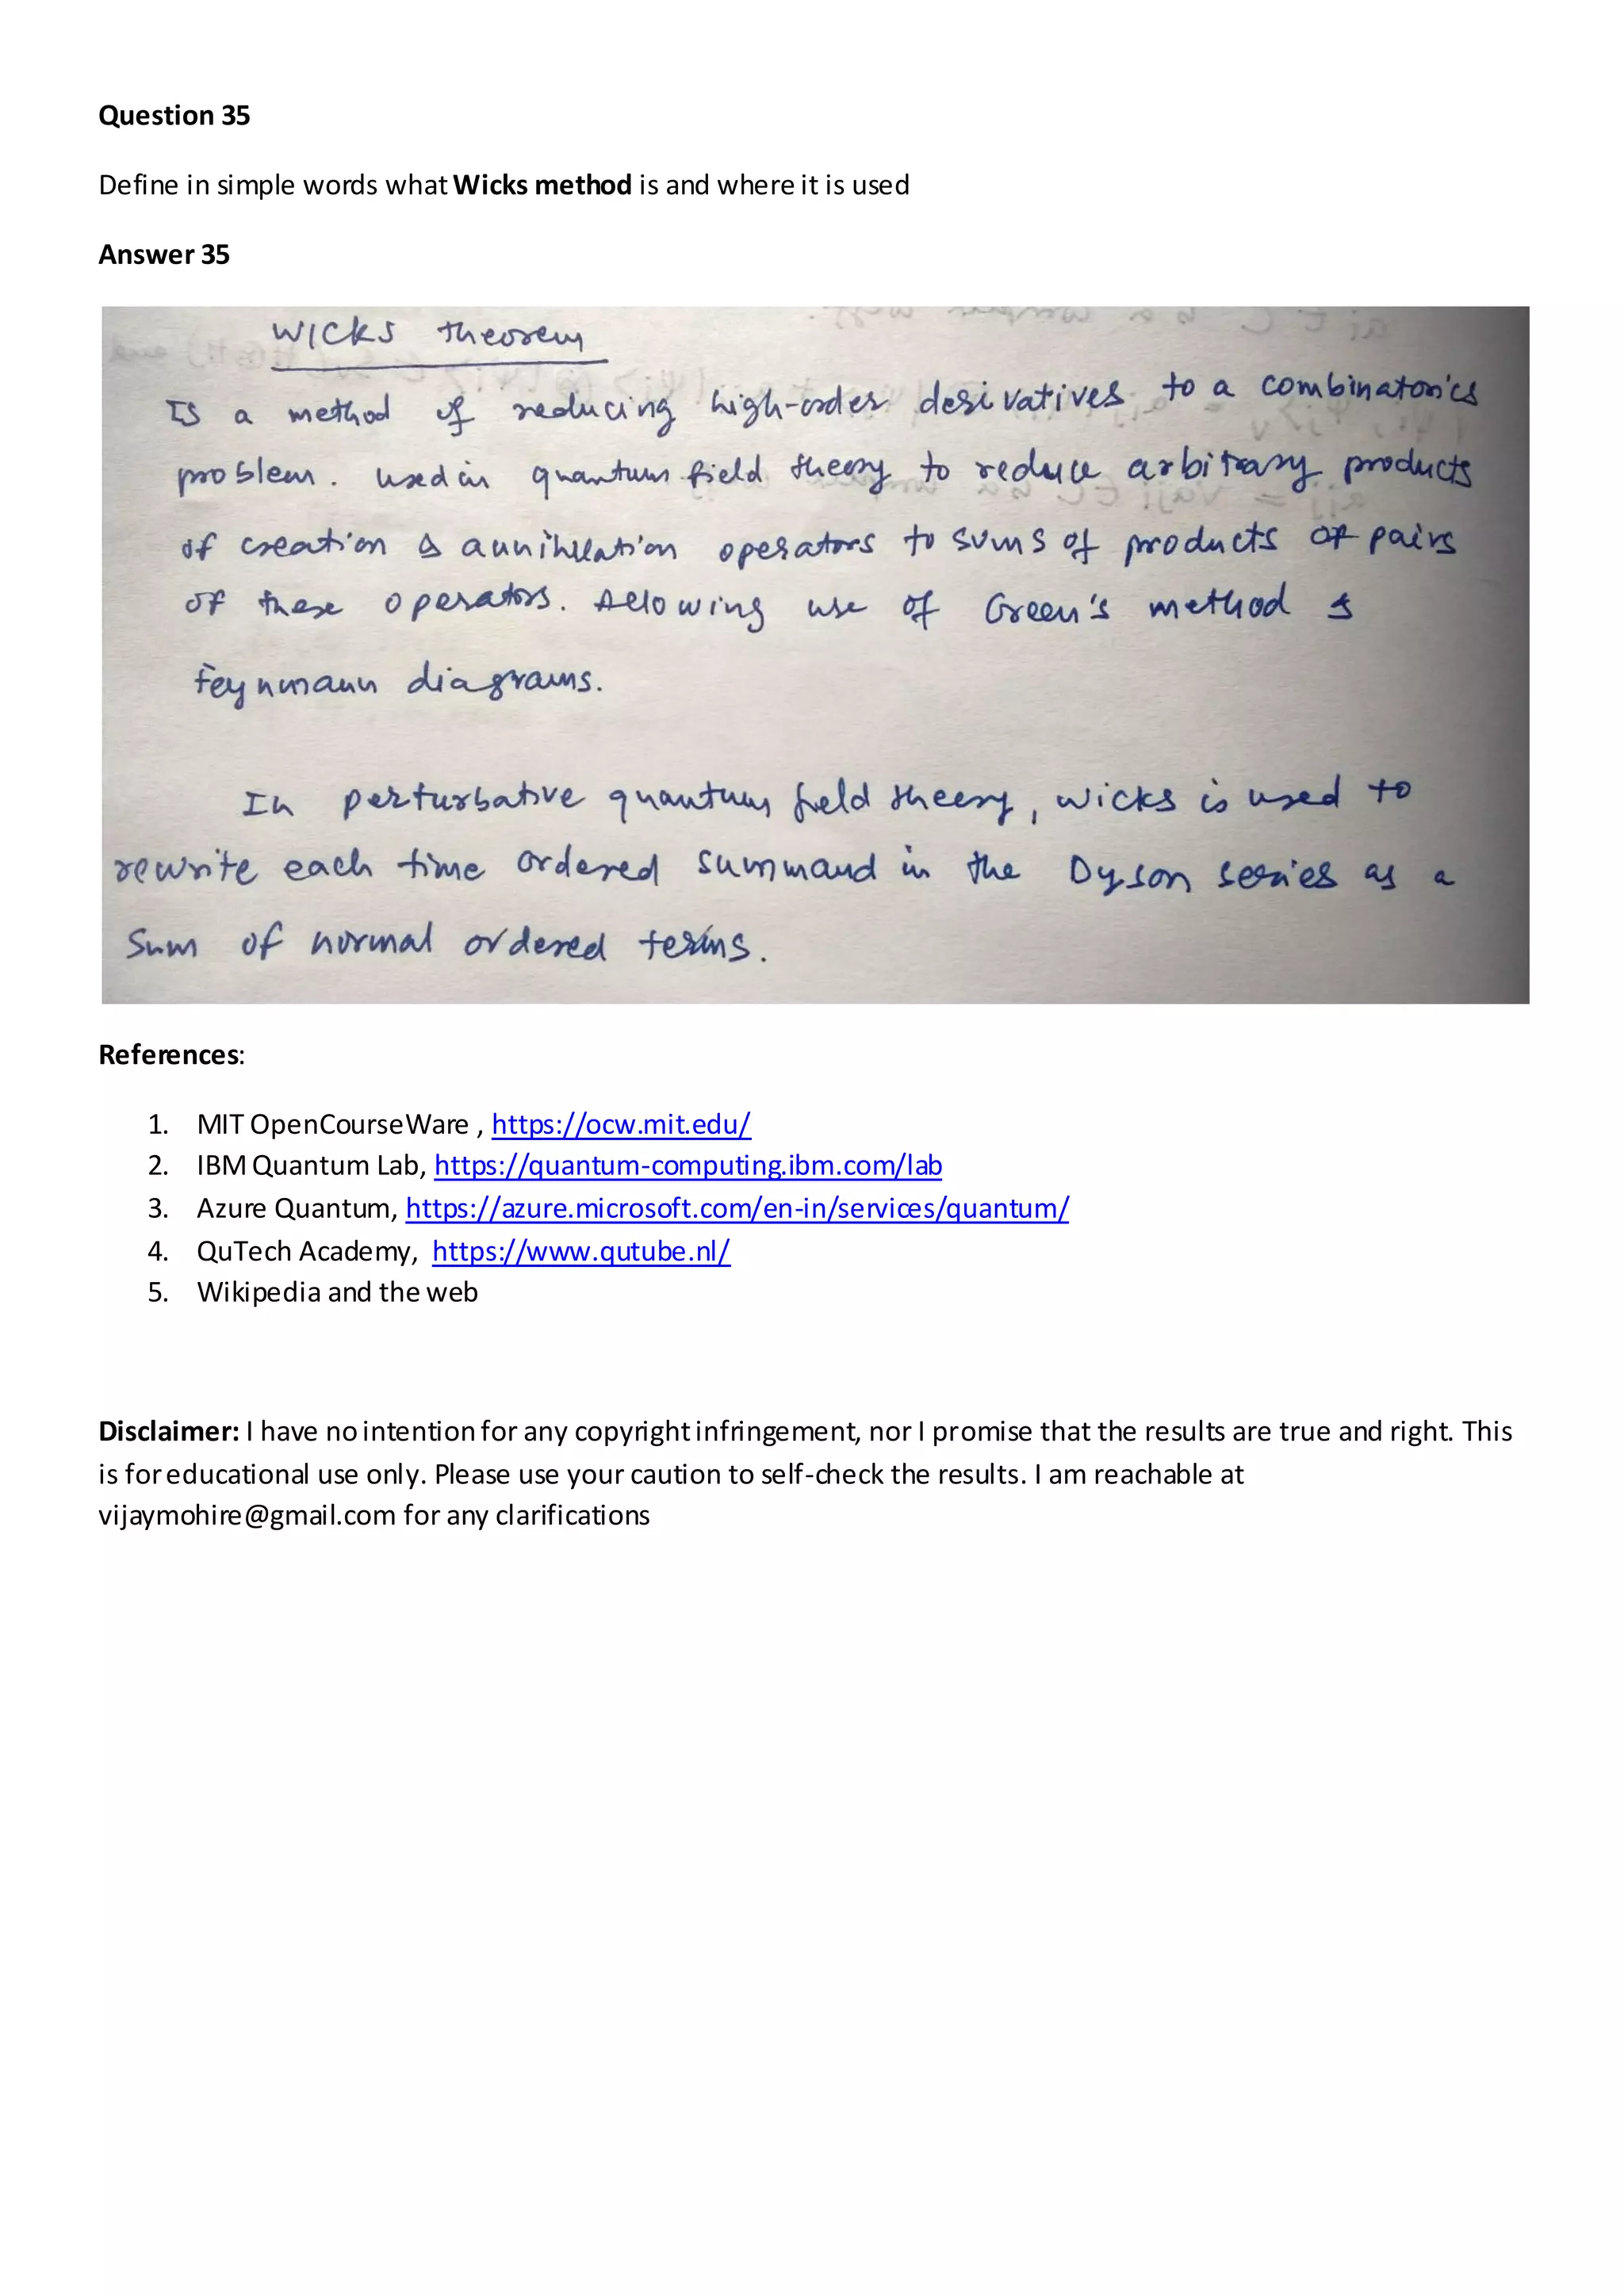 Question 35
Define in simple words what Wicks method is and where it is used
Answer 35
WICKS theorem
Is a method of reducing high-order derivatives to a combinatorics
problem. used in quantum field theory to reduce arbitrary products
of creation & annihilation operators to sums of products of pairs
of these operators. Allowing use of Green's method &
Feynmann diagrams.
In perturbative quantum field theory, wicks is used to
rewrite each time ordered summand in the Dyson series as a
Sum of normal ordered terms.
References:
1. MIT OpenCourseWare , https://ocw.mit.edu/
2. IBM Quantum Lab, https://quantum-computing.ibm.com/lab
3. Azure Quantum, https://azure.microsoft.com/en-in/services/quantum/
4. QuTech Academy, https://www.qutube.nl/
5. Wikipedia and the web
Disclaimer: I have no intention for any copyright infringement, nor I promise that the results are true and right. This
is for educational use only. Please use your caution to self-check the results. I am reachable at
vijaymohire@gmail.com for any clarifications